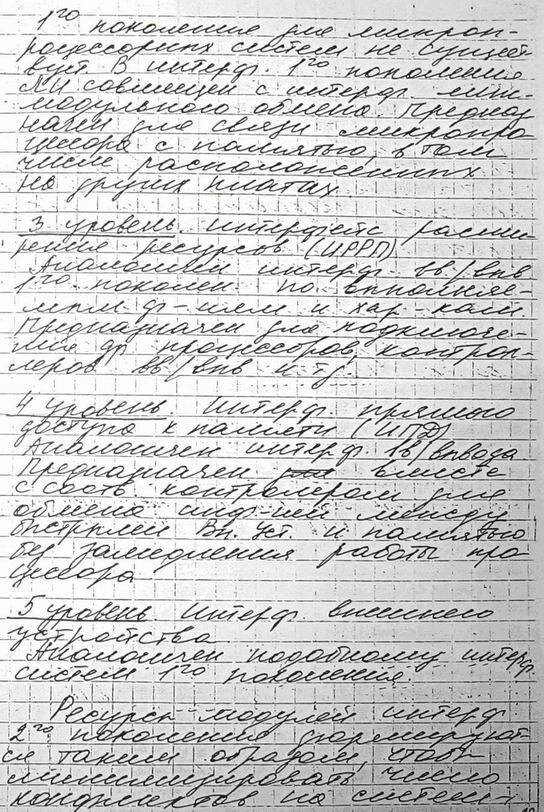 1го поколение для микроп-
роцессорных систем не сущест
вует. В интерф. 1го поколения
совмещен с интерф.
модульного обмена. Предназ
начен для связи микропро
цессора с памятью, в том
числе расположенных
на других платах.
3 уровень. Интерфейс расши
рения ресурсов (ИРРП)
Аналогичен интерф. вв/выв
1го поколен по выполняе-
мым ф-циям и хар-кам
Предназначен для подключе-
ния др процессоров, контрол-
леров вв/выв и тд.
4 уровень. Интерф. прямого
доступа к памяти (ИПД)
Аналогичен интерф. вв/вывода
Предназначен вместе
с соотв контролером для
обмена инф-цией между
быстрыми Вн. уст. и памятью
без замедления работы про
цессора
5 уровень Интерф. внешнего
устройства
Аналогичен подобному интерф.
систем 1го поколения.
Ресурсы модулей интерф
2го поколения формируют
ся таким образом, чтобы
минимизировать число
конфликтов на системн